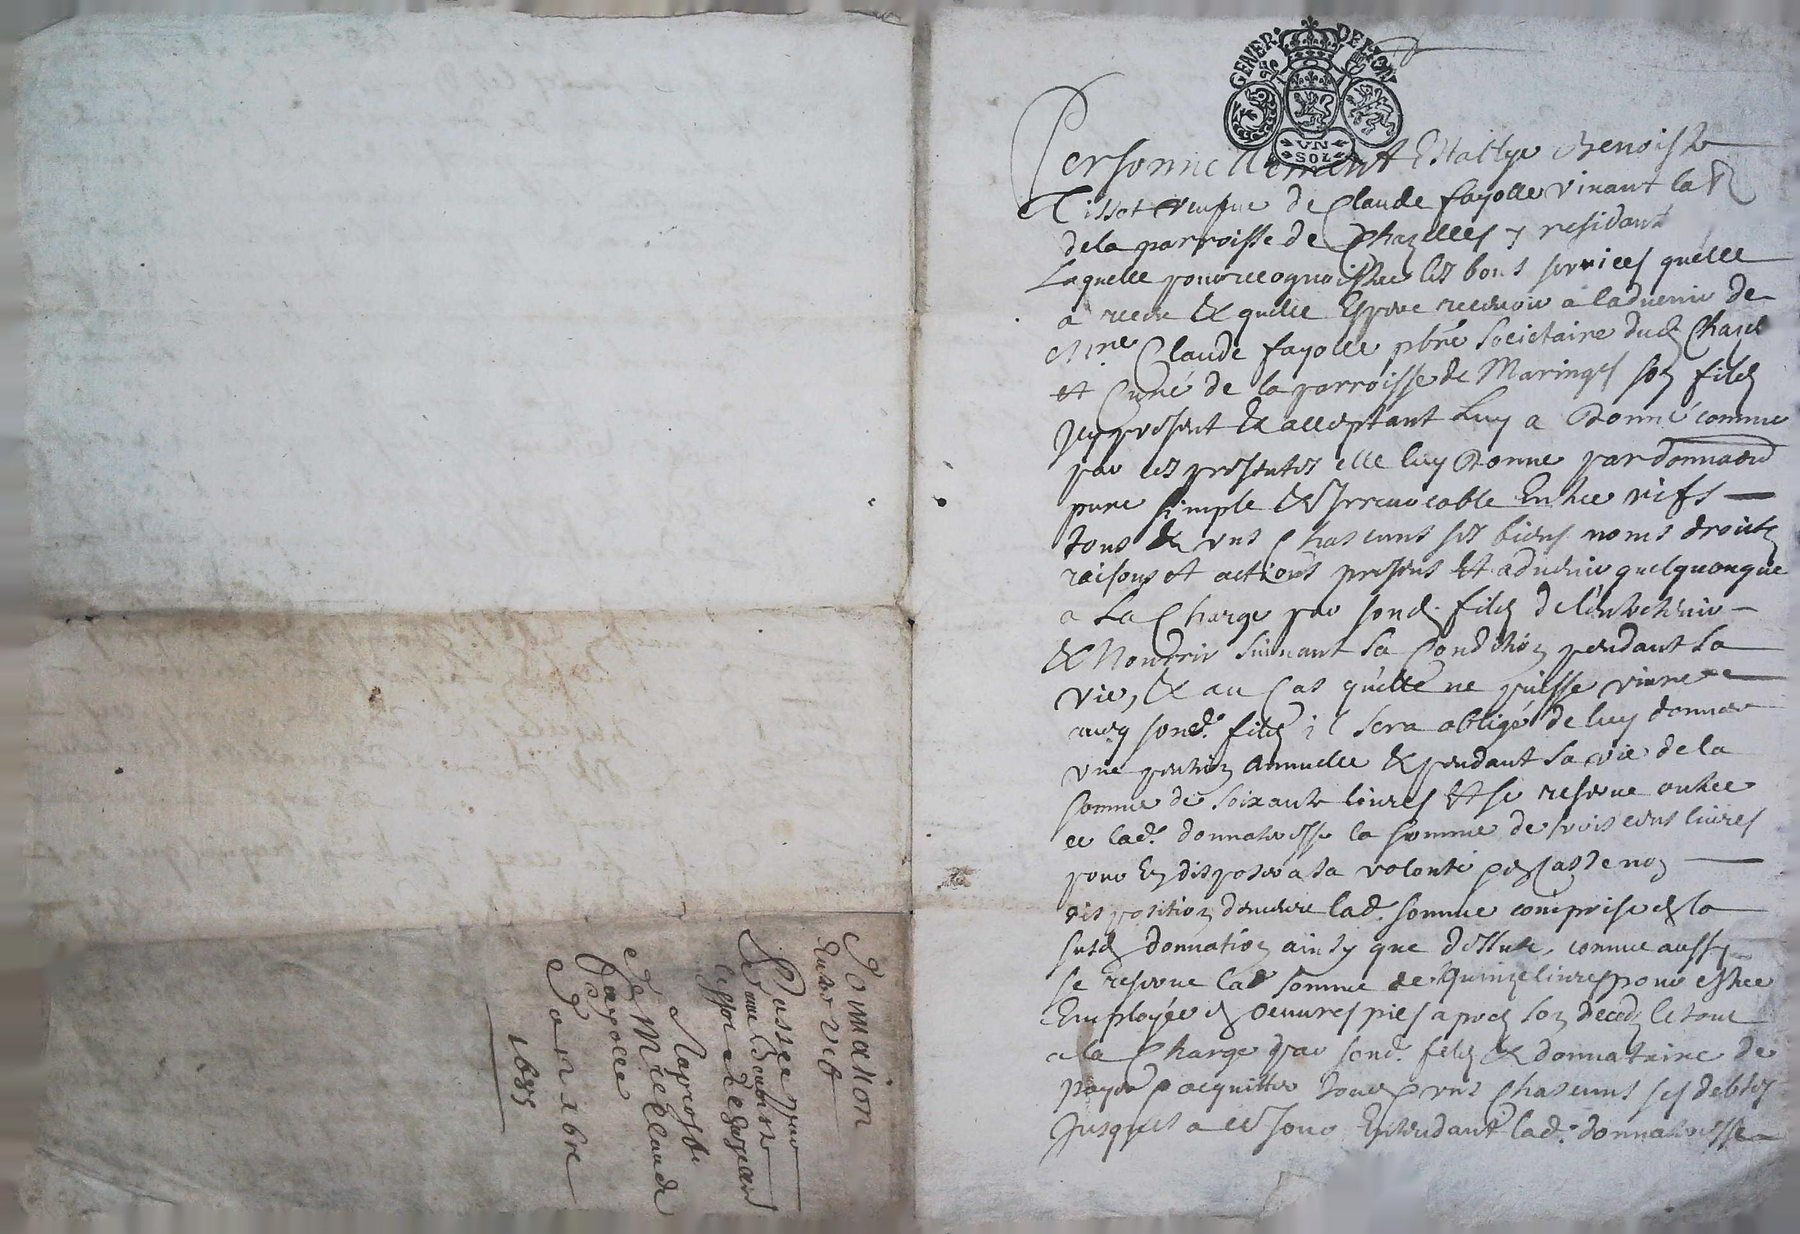 GENER. DE LION
VN
SOL
Personnellement Establye Benoiste
Tissot veufue de Claude fayolle viuant la
de la parroisse de Chazelles y residant
Laquelle pour recognoistre les bons seruices quelle
a receu & quelle Espere receuoir a laduenir de
Mre Claude fayolle pbre societaire dud Chazel
et Curé de la parroisse de Maringes son filz
Icy present & acceptant Luy a Donné comme
par ces presentes elle luy Donne par donnaon
pure simple & Irreuocable Entre vifs
tous & vns Chascuns ses biens noms droictz
raisons et actions presens et aduenir quelquonque
a La Charge par sond. filz de lentretenir
& Nourrir suiuant sa Condition pendant sa
vie, & au Cas quelle ne puisse viure
aueq sond. filz il sera obligé de luy donner
vne pention Annuelle & pendant sa vie de la
somme de soixante liures et se reserue outre
ce lad. donnatresse la somme de trois cens liures
pour En disposer a sa volonté
disposition demeure lad. somme comprise en la
susd donnation ainsy que dessus, comme aussy
se reserue lad somme de quinze liures pour estre
Employée en Oeuures pies apres son deceds le tout
a la Charge par sond. filz & donnataire de
payer acquitter tous vns Chascuns ses debtes
Jusques a ce Jour Entendant lad. donnatresse
Donnation
Entre vifs
Passée par
dame Benoiste
Tissot
a proffit
de Mre Claude
Fayolle
1685